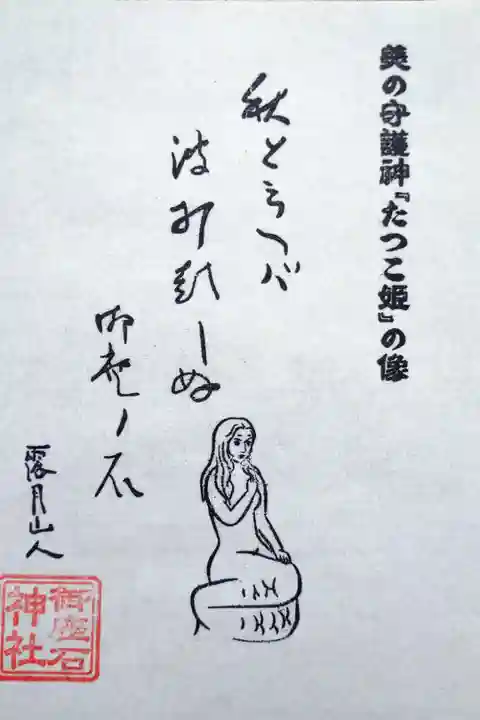 美の守護神『たつこ姫』の像
秋と云へバ
波打彰しぬ
御座ノ石
露月山人
御座石
神社